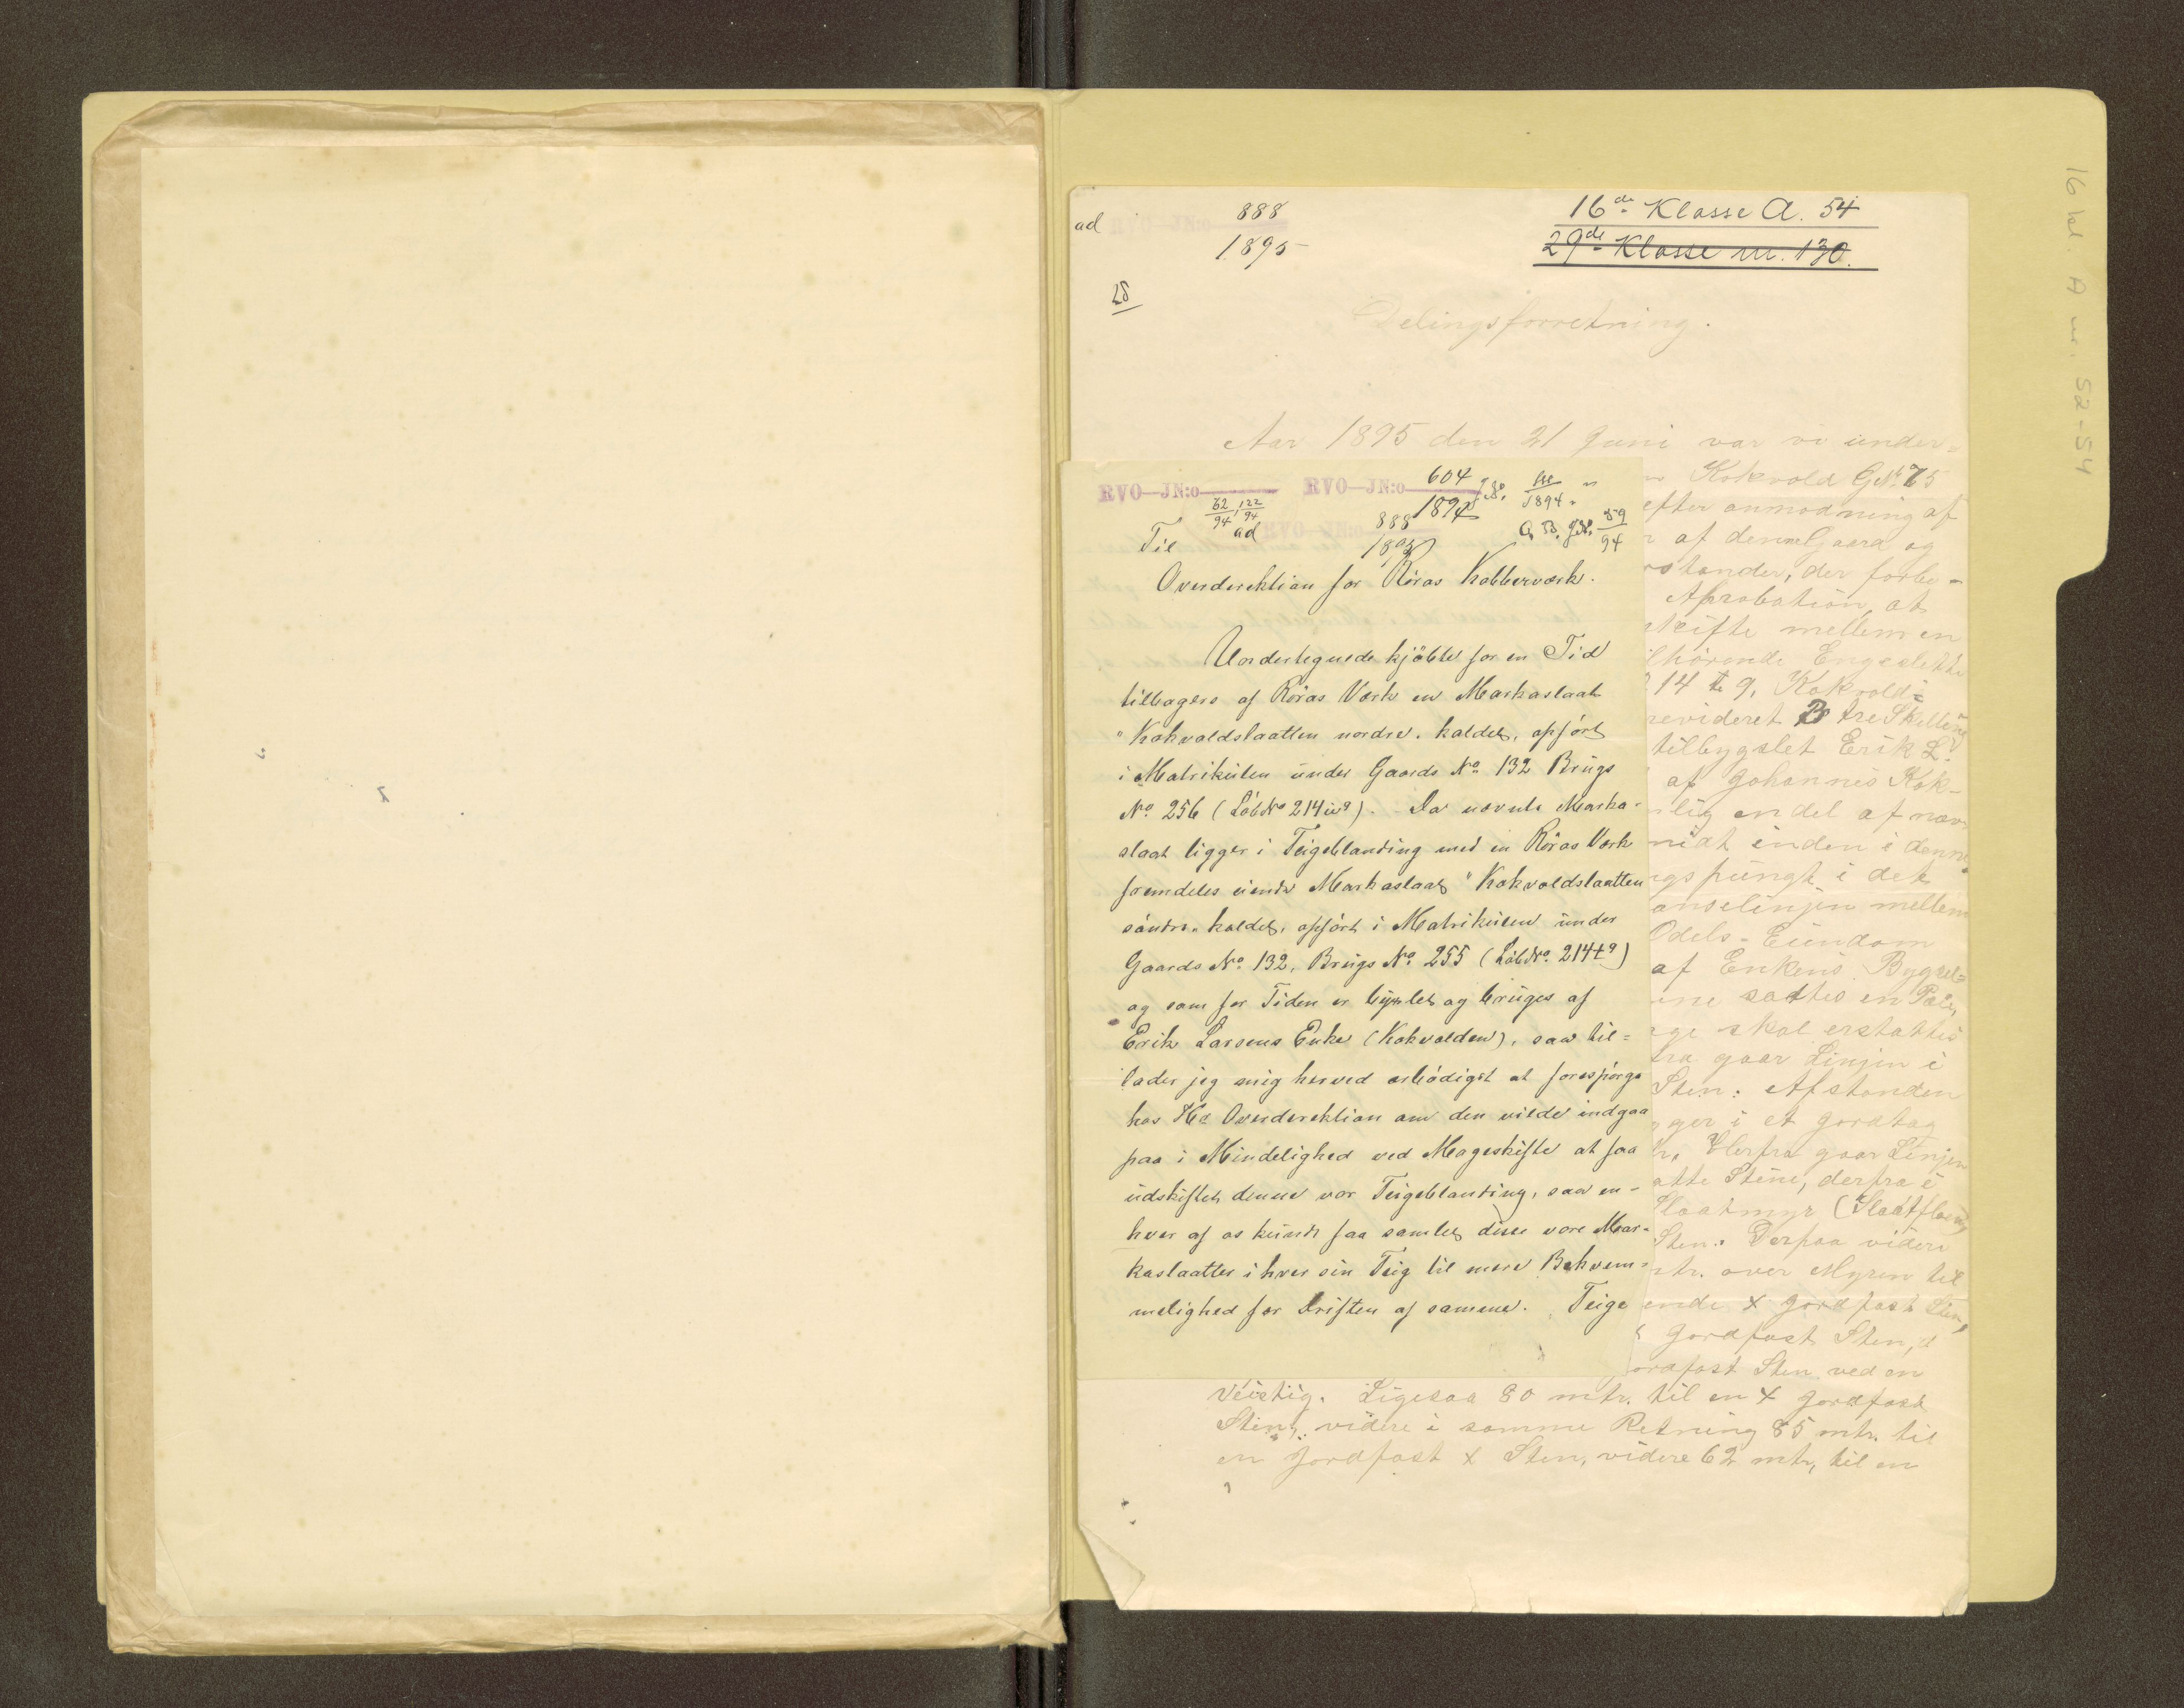 16 kl A nr. 52-54
ad 888
1895
16de Klasse A. 54
29de Klasse nr. 130.
28
Delingsforretning.
Aar 1895 den 21 Juni var vi under-
Kokvold GNr. 75
efter anmodning af
af denne Gaard og
stander, der forbe-
Aprobation, at
skifte mellem en
lhörende Engeslette
214 t 9, Kokvold-
revideret tre Skilling
tilbygslet Erik L.
af Johannes Kok-
lig en del af næv
midt inden i denne
gspüngt i det
anselinjen mellem
Odels-Eiindom
af Enkens Bygsel-
ine sattes en Pæle,
ge skal erstattes
fra gaar Linjen i
Sten: Afstanden
ger i et Jordtag
Herfra gaar Linjen
atte Stene, derfra i
Slaatmyr (Slaatflo
Sten. Derpaa videre
mtr. over Myren til
ende x jordfast Sten,
Jordfast Sten,
ordfast Sten ved en
Veistig. Ligesaa 80 mtr. til en x Jordfast
Sten, videre i samme Retning 85 mtr. til
en Jordfast x Sten, videre 62 mtr, til en
RVO-JN:o RVO-JN:o 604
1894
62/94, 122/94
ad 888
1895
59/94
Til
Overdirektion for Röros Kobberværk.
Undertegnede kjöbte for en Tid
tilbagers af Röras Værk en Markaslaat
"Kokvoldslaatten nordre" kaldet, opfört
i Matrikülen ünder Gaards No 132 Brügs
No 256 (LöbNo 214ü9). Da nævnte Marka-
slaat ligger i Teigeblanding med en Röras Værk
fremdeles eiende Markaslaat "Kokvoldslaatten
söndre" kaldet, opfört i Matrikülen ünder
Gaards No 132, Brügs No 255 (LöbNo. 214t9)
og som for Tiden er bygslet og brüges af
Erik Larsens Enke (Kokvolden), saa til-
lader jeg mig herved ærbödigst at forespörge
hos Hr Overdirektion om den vilde indgaa
paa i Mindelighed ved Mageskifte at faa
üdskiftet denne vor Teigeblanding, saa en-
hver af os künde faa samlet disse vore Mar-
kaslaatter i hver sin Teig til mere Bekvem-
melighed for Driften af samme. Teige